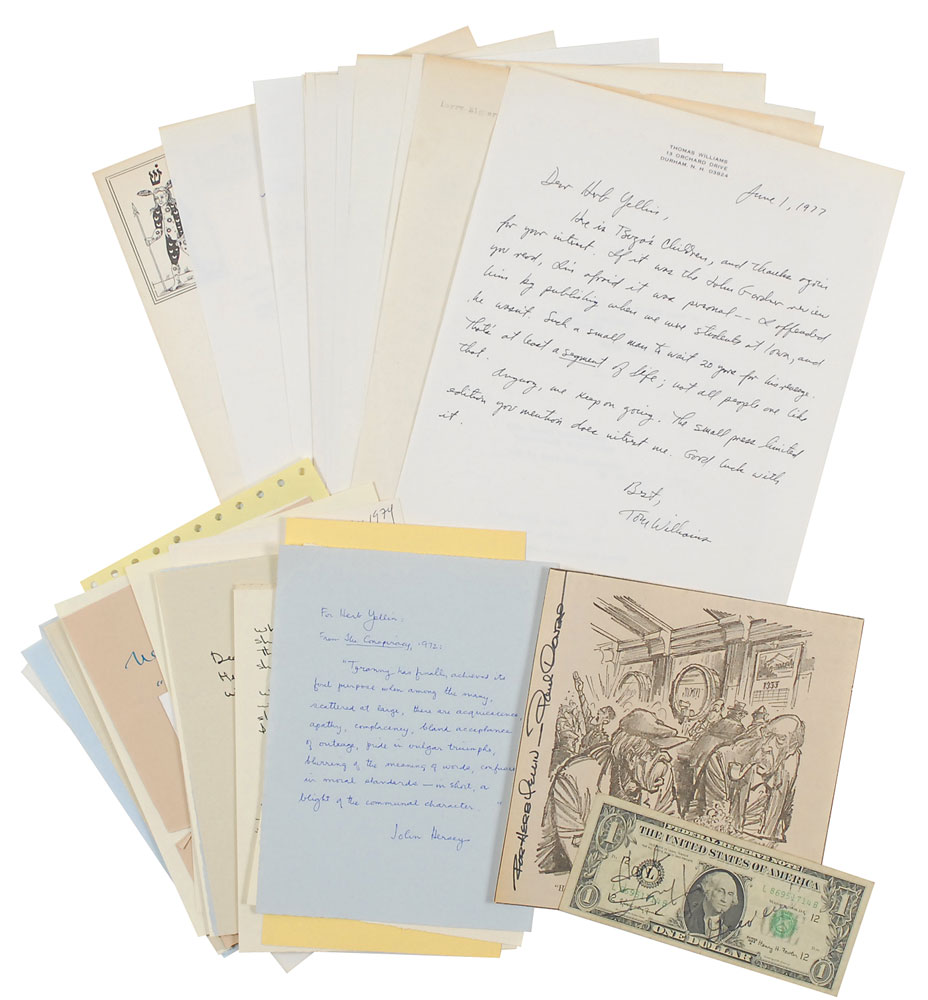 THOMAS WILLIAMS
13 ORCHARD DRIVE
DURHAM, N. H. 03824
June 1, 1977
Dear Herb Yellin,
Here is Tsuga's Children, and thanks again
for your interest. If it was the John Gardner review
you read, I'm afraid it was personal -- I offended
him by publishing when we were students at Iowa, and
he wasn't. Such a small man to wait 20 years for his revenge.
That's at least a segment of life; not all people are like
that.
Anyway, we keep on going. The small press limited
edition you mention does interest me. Good luck with
it.
Best,
Tom Williams
1974
For Herb Yellin,
From The Conspiracy, 1972:
"Tyranny has finally achieved its
full purpose when among the many,
scattered at large, there are acquiescence,
apathy, complacency, bland acceptance
of outrage, pride in vulgar triumphs,
blurring of the meaning of words, confusion
in moral standards — in short, a
blight of the communal character."
John Hersey
FOR HERB YELLIN — Paul Darrow
1933
"H
FEDERAL RESERVE NOTE
THE UNITED STATES OF AMERICA
L
L 86951714 B
12
12
ONE DOLLAR
1
1
1
1